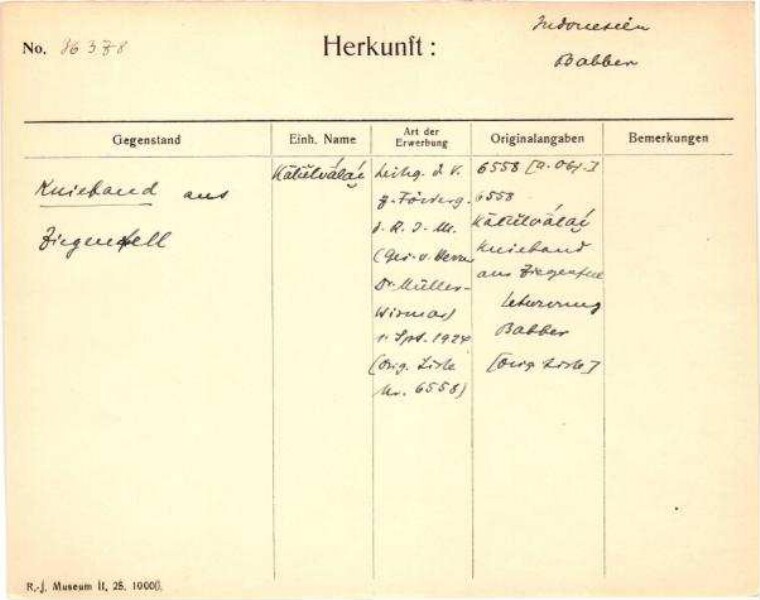 No. 36378
Herkunft:
Indonesien
Babber
Gegenstand
Einh. Name
Art der Erwerbung
Originalangaben
Bemerkungen
Knieband aus
Ziegenfell
Leihg. d. V.
z. Förderg.
d. R. J. M.
(Ges. v. Herrn
Dr. Müller-
Wismar)
1. Spt. 1924
(Orig. Liste
Nr. 6558)
6558 [a. Obj.]
6558
Knieband
aus Ziegenfell
Babber
[Orig. Liste]
R.-J. Museum II, 25. 10000.